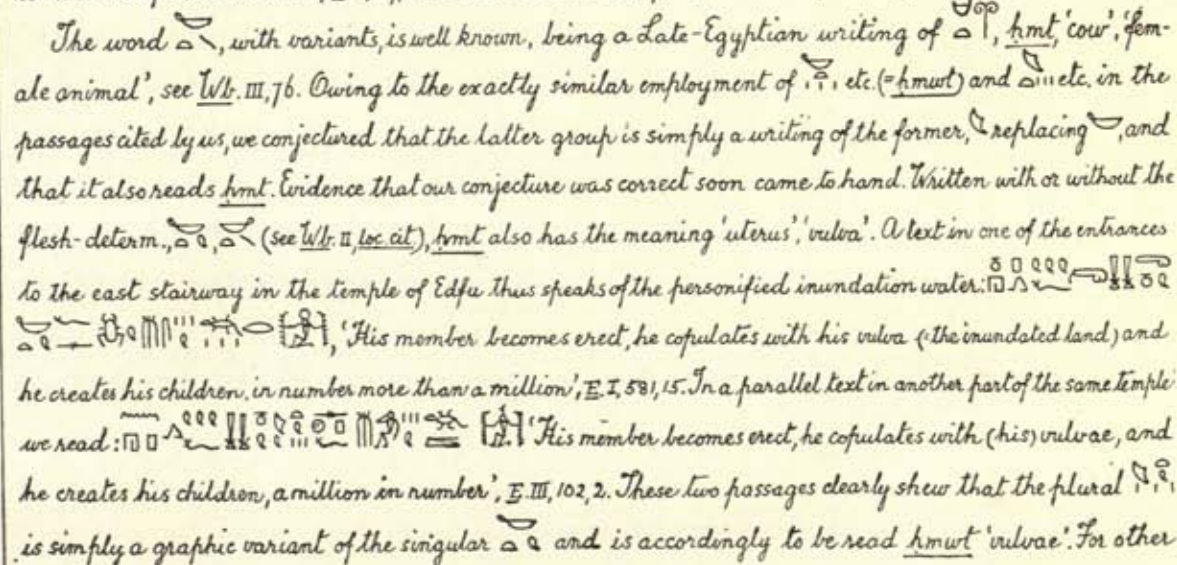 The word , with variants, is well known, being a Late-Egyptian writing of , ḥmt, 'cow', 'fem-
ale animal', see Wb. III, 76. Owing to the exactly similar employment of etc. (= ḥmwt) and etc. in the
passages cited by us, we conjectured that the latter group is simply a writing of the former, replacing , and
that it also reads ḥmt. Evidence that our conjecture was correct soon came to hand. Written with or without the
flesh-determ., , (see Wb. II, loc. cit.), ḥmt also has the meaning 'uterus', 'vulva'. A text in one of the entrances
to the east stairway in the temple of Edfu thus speaks of the personified inundation water:
, 'His member becomes erect, he copulates with his vulva (the inundated land) and
he creates his children, in number more than a million', E. I, 581, 15. In a parallel text in another part of the same temple
we read: 'His member becomes erect, he copulates with (his) vulvae, and
he creates his children, a million in number', E. III, 102, 2. These two passages clearly shew that the plural
is simply a graphic variant of the singular and is accordingly to be read ḥmwt 'vulvae'. For other